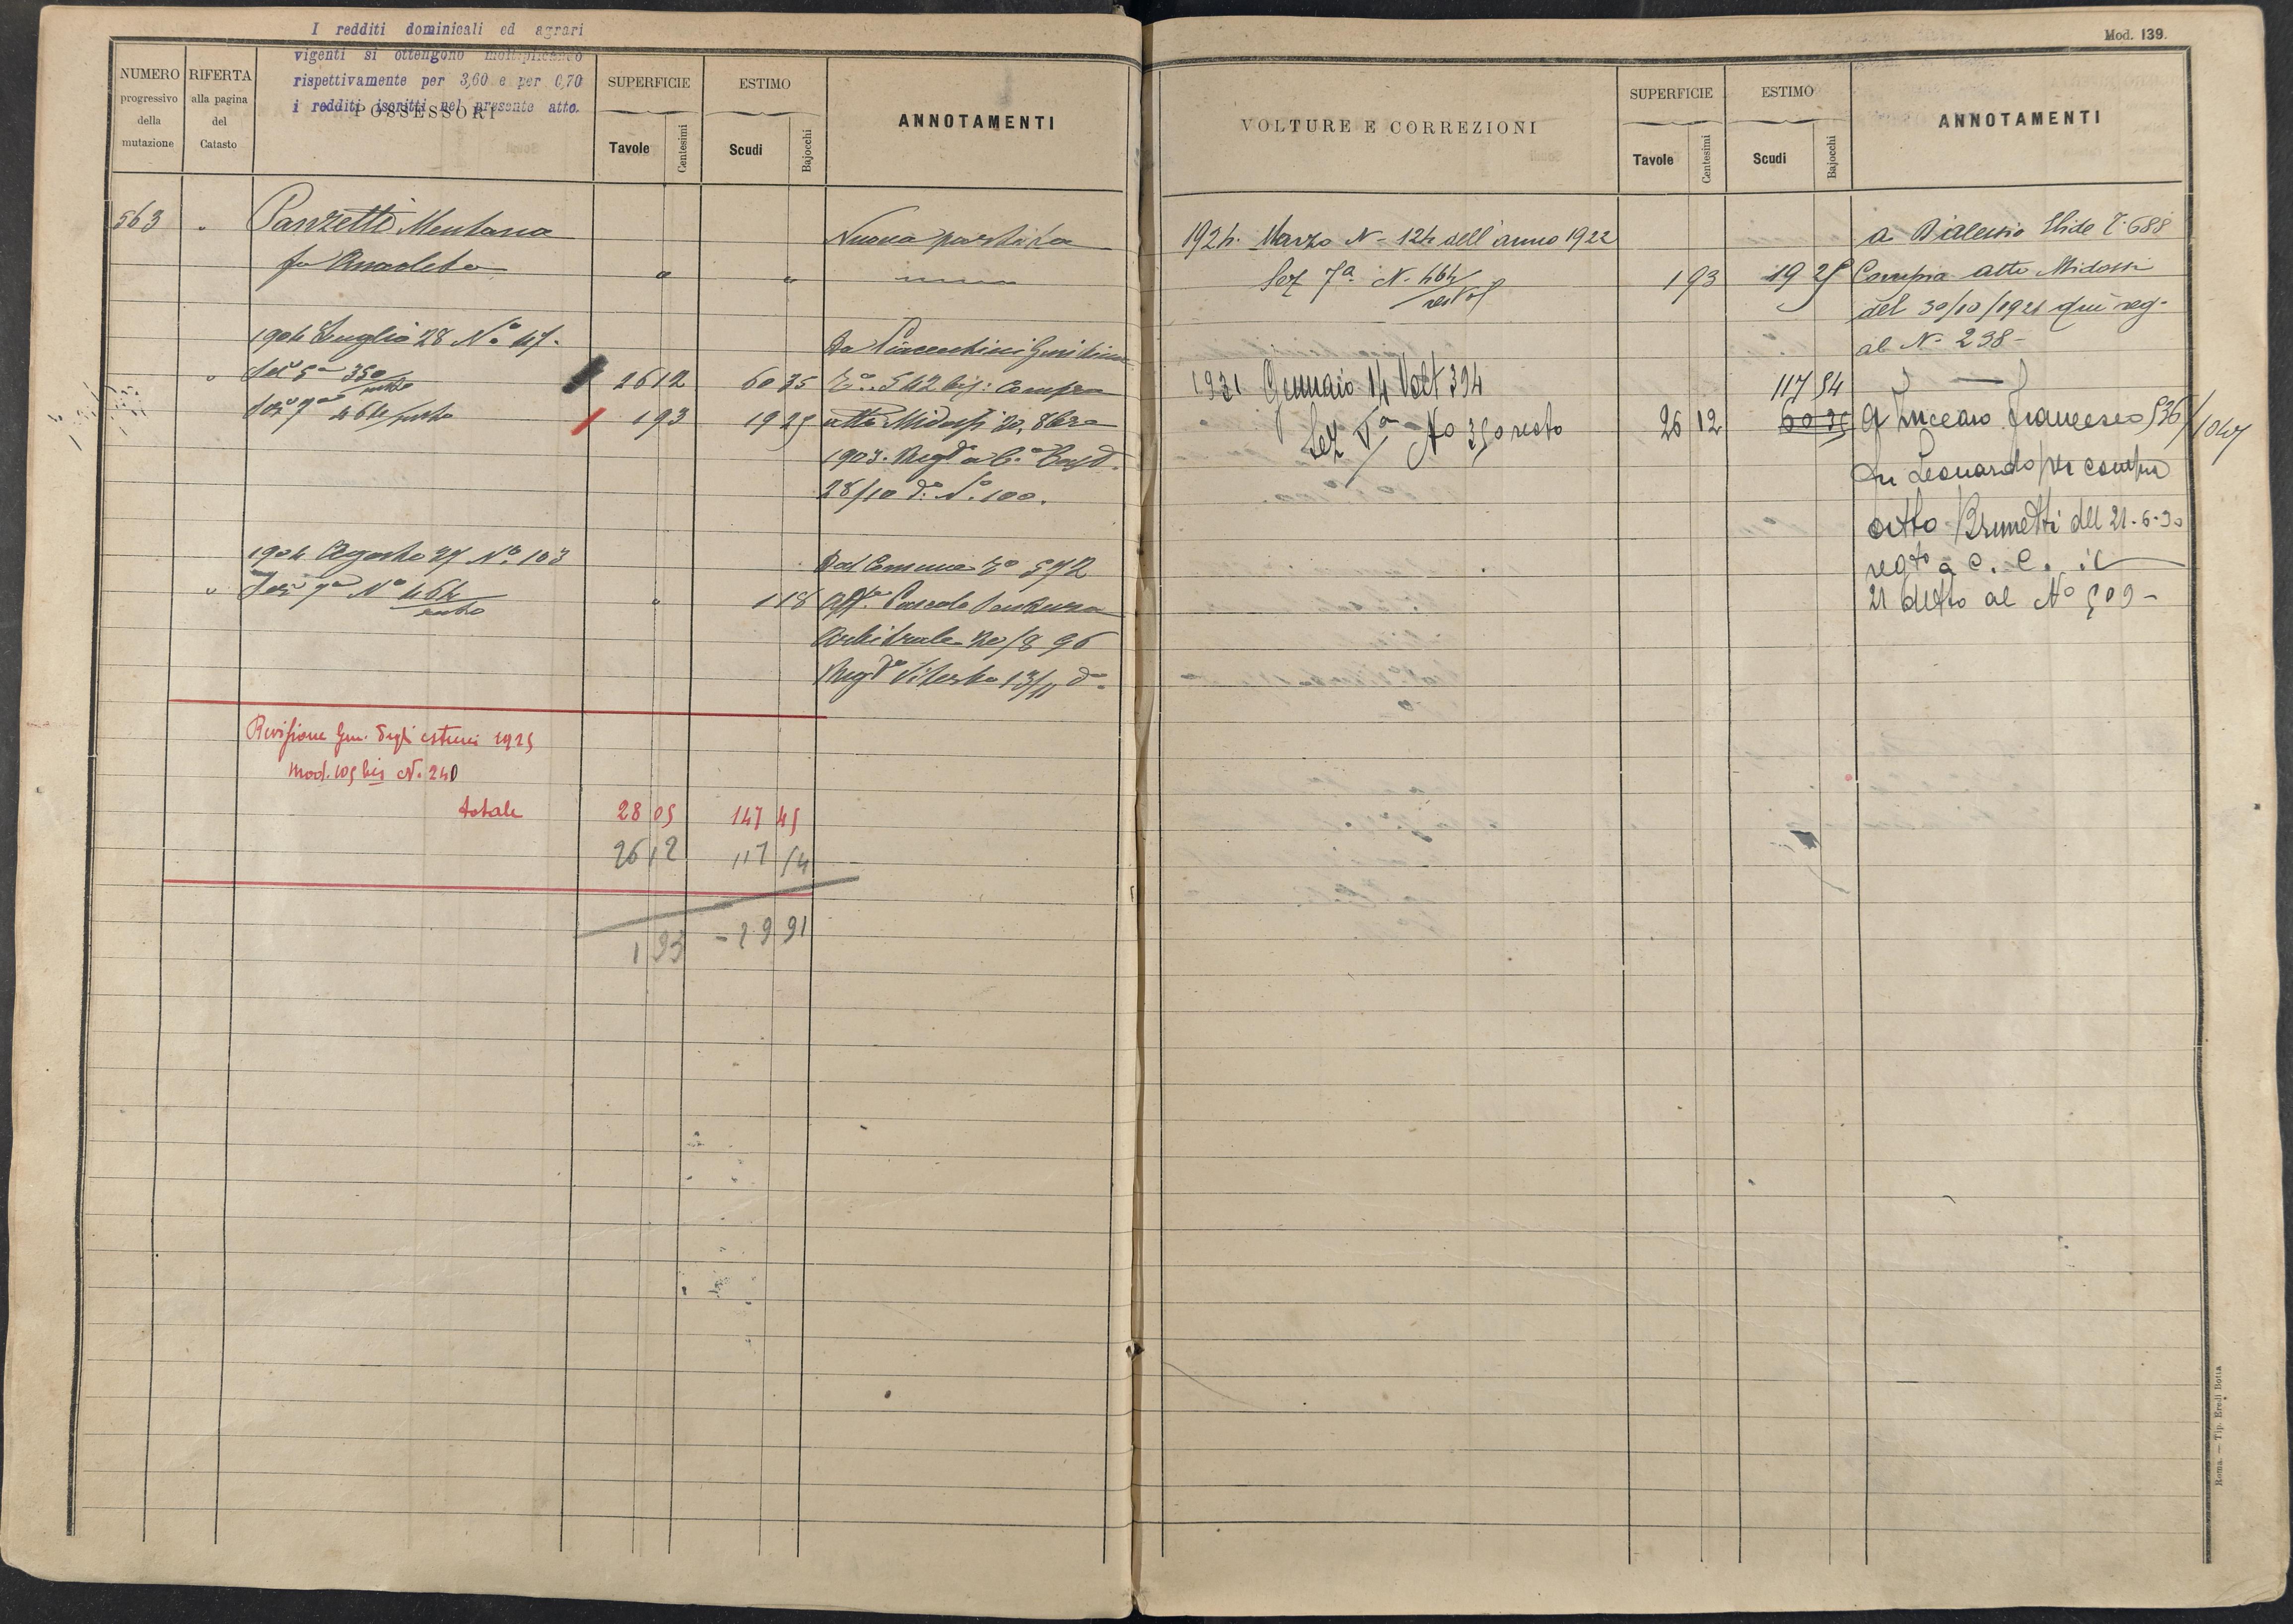 I redditi dominicali ed agrari
vigenti si ottengono moltiplicando
rispettivamente per 3,60 e per 0,70
i redditi iscritti nel presente atto.
NUMERO
progressivo
della
mutazione
RIFERTA
alla pagina
del
Catasto
POSSESSORI
SUPERFICIE
Tavole
Centesimi
ESTIMO
Scudi
Bajocchi
ANNOTAMENTI
563 " Panzetti Mentana Nuova partita
fu Anacleto " "
1904 Luglio 28 No 47. Da Piacentini
" Sez 5a 350/resto 26 12 60 35 542 bis: Compra
Sez 7a 464/resto 1 93 19 25 atto Midossi 20. 8bre
1903. Regto a C. Cast.
28/10 do No. 100.
1904 Agosto 27 No. 103 Dal Comune To 572
" Sez 7a No 464/resto " 1 18 Aff. Pascolo Sentenza
Arbitrale 20/8 96
Regto Viterbo 13/11 do
Revisione Gen. degli estimi 1925
Mod. 105 bis N. 240
totale 28 05 147 45
26 12 117 54
1 93 - 29 91
Mod. 139.
VOLTURE E CORREZIONI
SUPERFICIE
Tavole
Centesimi
ESTIMO
Scudi
Bajocchi
ANNOTAMENTI
1924. Marzo N- 124 dell'anno 1922 a Dalessio Elide T. 688
Sez 7a. N. 464/resto 1 93 19 25 Compra atto Midossi
del 30/10/1921 qui reg-
al N- 238-
1931 Gennaio 14 Volt 394 117 54
Sez Va No 350 resto 26 12 60 35 A Luceano Francesco 536/1047
fu Leonardo per compra
atto Brunetti del 21-6-30
regto a C. C. il
21 detto al No 509-
Roma. — Tip. Eredi Botta